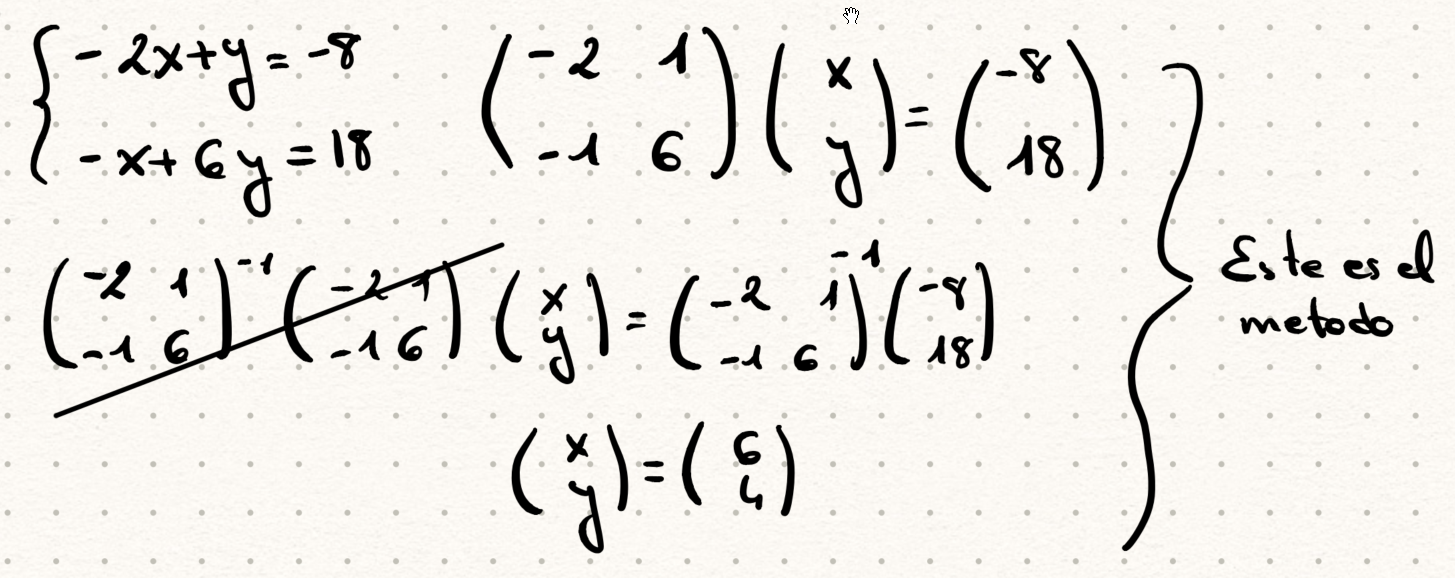 -2x+y=-8
-x+6y=18
(-2 1
-1 6) (x
y) = (-8
18)
(-2 1
-1 6)^-1 (-2 1
-1 6) (x
y) = (-2 1
-1 6)^-1 (-8
18)
(x
y) = (6
4)
Este es el
metodo